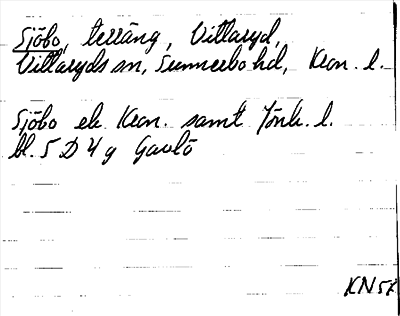 Sjöbo, terräng, Vittaryd,
Vittaryds sn, Sunnerbo hd, Kron. l.
Sjöbo ek Kron. samt Jönk. l.
bl. 5 D 4 g Gavlö